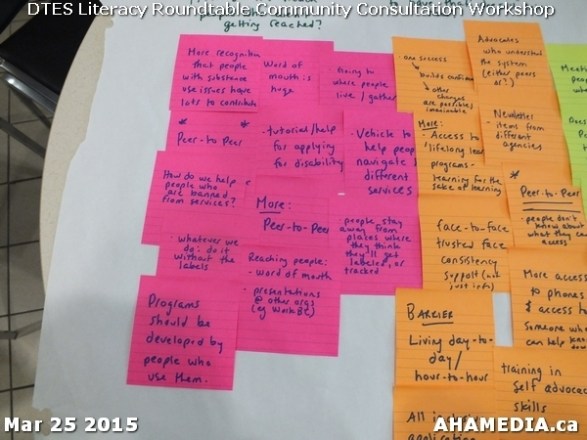 DTES Literacy Roundtable Community Consultation Workshop
getting reached?
More recognition
that people
with substance
use issues have
lots to contribute
Word of
mouth is
huge
Going to
where people
live / gather
* *
Peer-to Peer
- tutorial/help
for applying
for disability
- Vehicle to
help people
navigate
different
services
How do we help
people who
are banned
from services?
More:
Peer-to-Peer
people stay
away from
places where
they think
they'll get
labeled, or
tracked
- whatever we
do: do it
without the
labels
Reaching people:
- word of mouth
- presentations
@ other orgs
(eg WorkBC)
Programs
should be
developed by
people who
use them.
one success
builds confidence
other
changes
are possible/
imaginable
Advocates
who understand
the system
(either peers
or?)
More:
- Access to
lifelong
programs-
learning for the
sake of learning
Newsletter
- items from
different
agencies
*
Peer-to-Peer
- people don't
know about
what they can
access
face-to-face
trusted face
consistency
support (not
just info)
More access
to phones
& access to
someone who
can help
BARRIER
Living day-to-
day/
hour-to-hour
training in
self advocacy
skills
All
application
Mar 25 2015
AHAMEDIA.ca